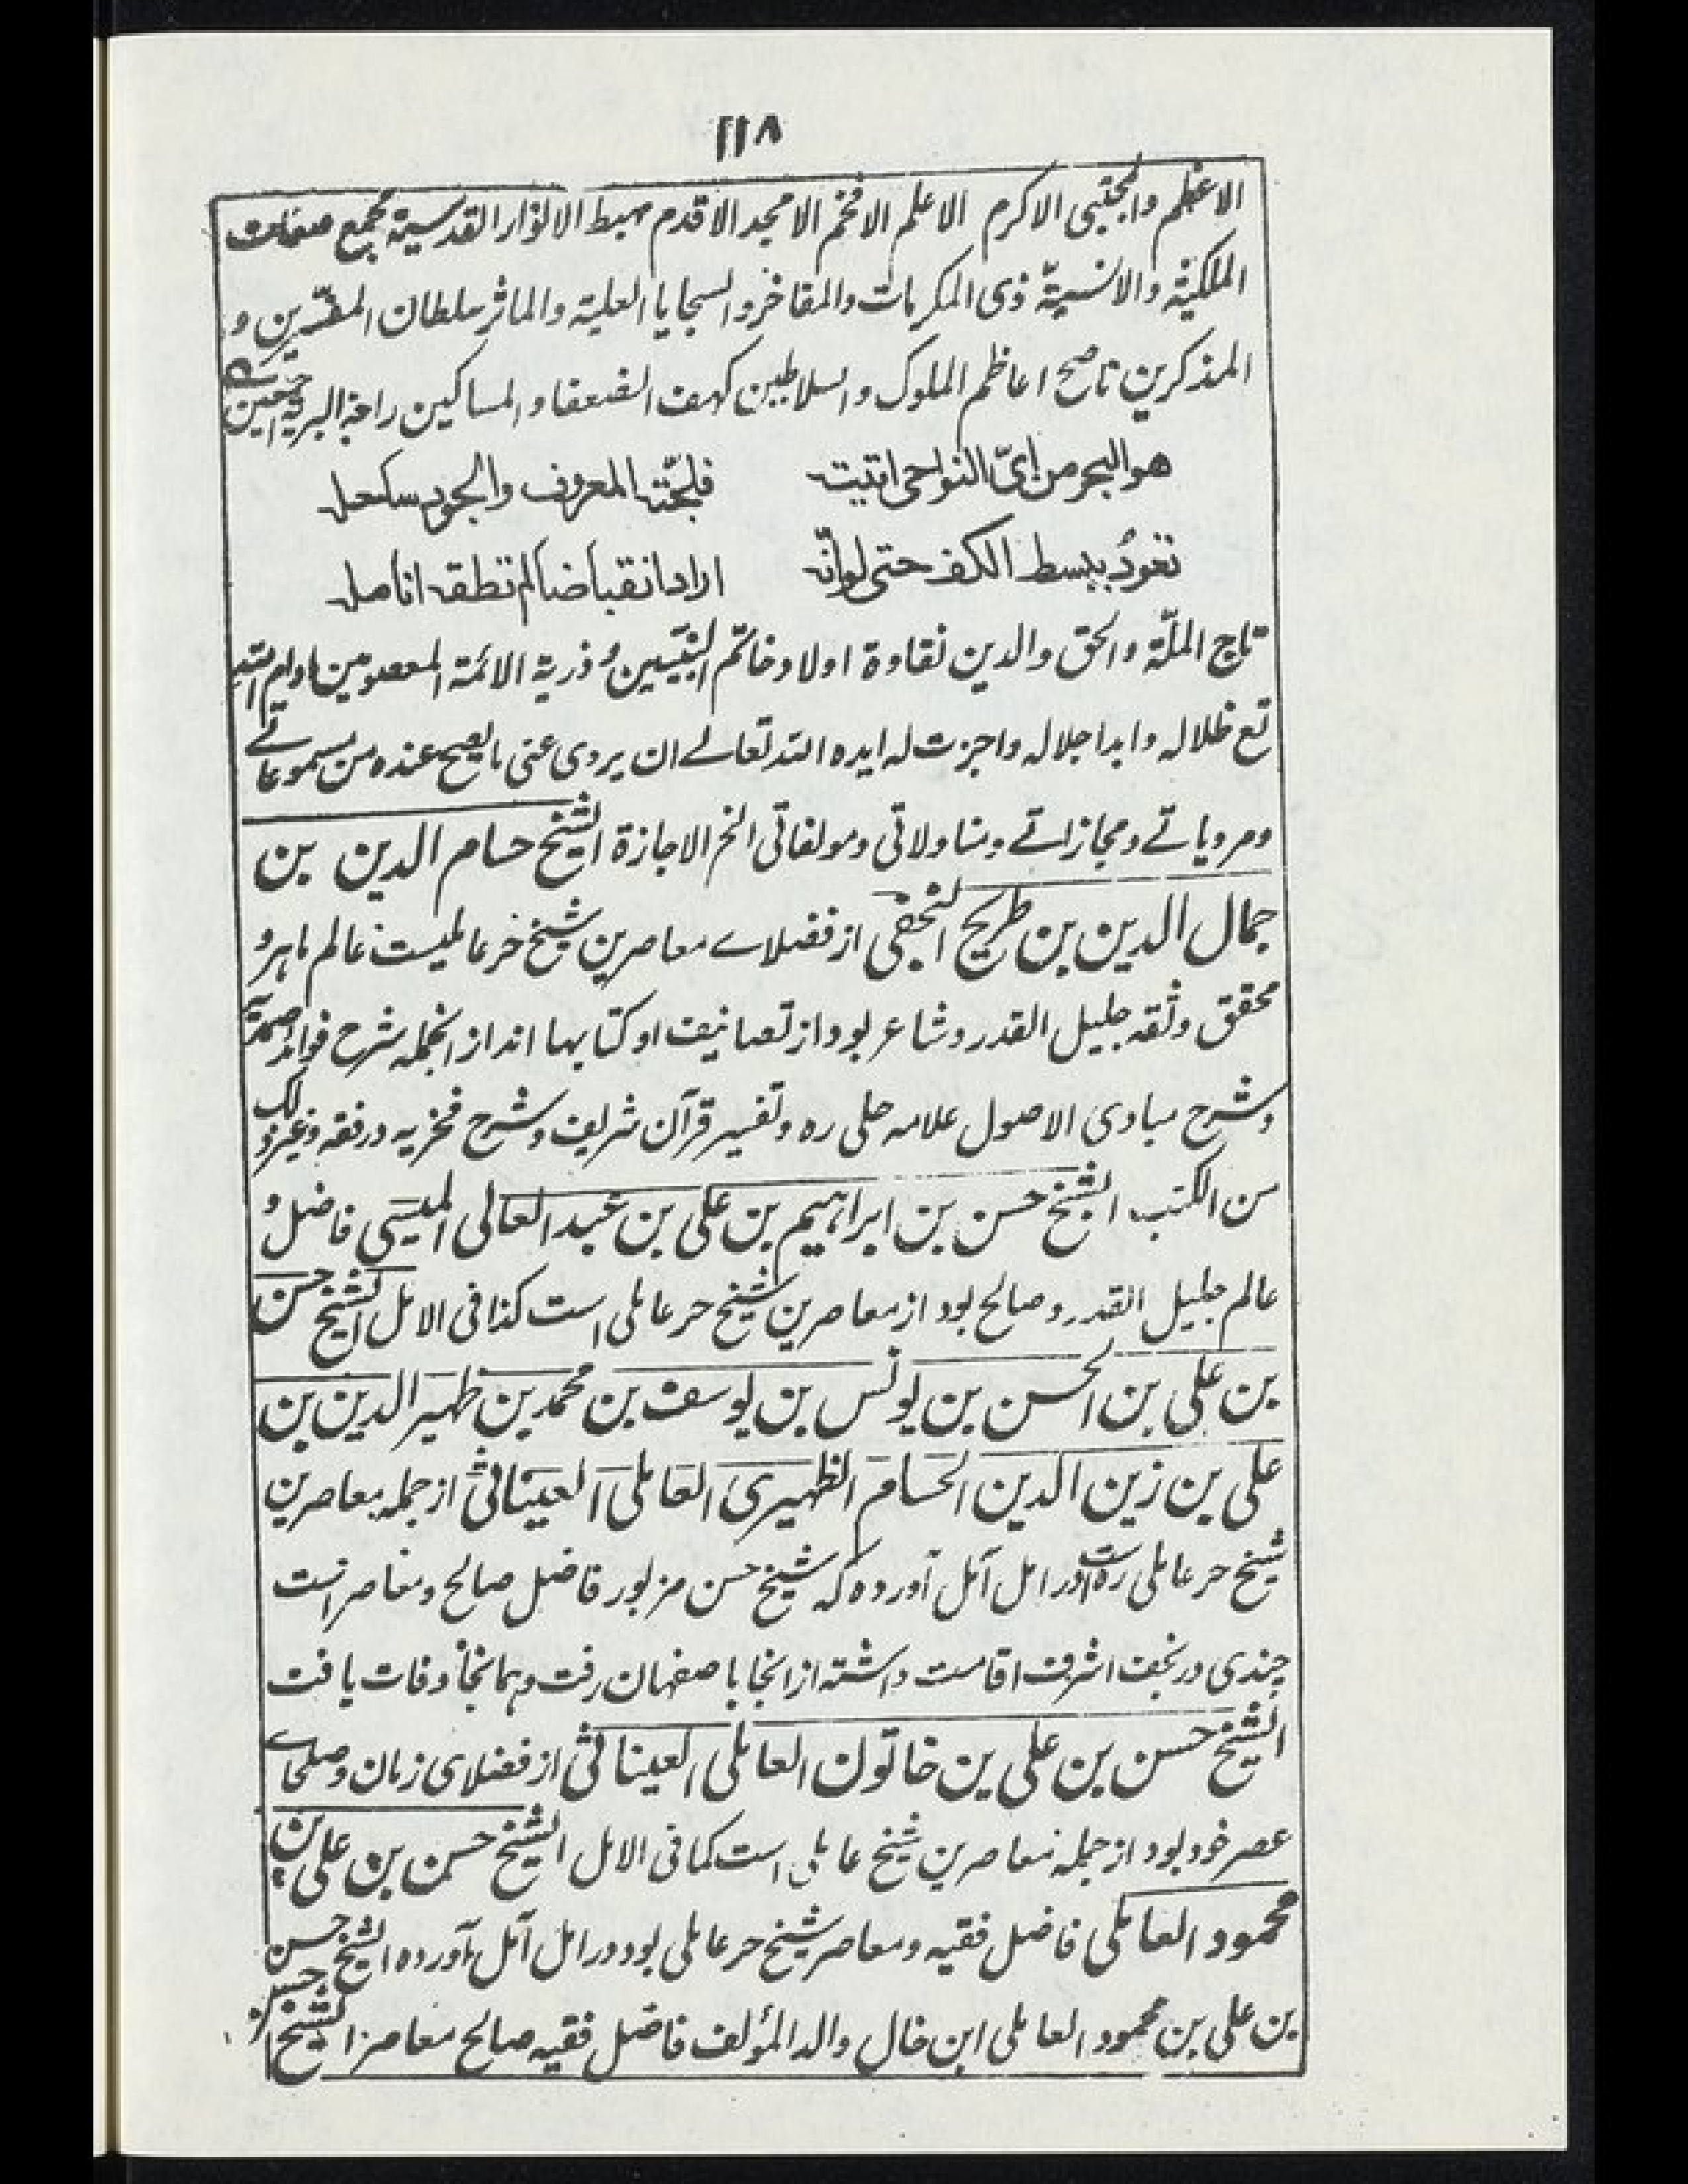 ١١٨
الاعظم والمجتبی الاکرم الاعلم الافخم الامجد الاقدم مهبط الانوار القدسیة مجمع صفات
الملکیة والانسیّة ذی المکرمات والمفاخر والسجایا العلیة والماثر سلطان المفسّرین و
المذکرین ناصح اعاظم الملوک والسلاطین کهف الضعفا والمساکین راحة البریة اجمعین
هو البحر من ایّ النواحی اتیته فلجّته المعروف والجود ساحله
تعودُ ببسط الکف حتی لو انّه اراد انقباضا لم تطقه انامله
تاج الملّة والحق والدین نقاوة اولاد خاتم النبیّین و ذریة الائمة المعصومین ادام الله
تع ظلاله وابد اجلاله واجزت له ایده الله تعالے ان یروی عنی ما یصح عنده من مسموعاتے
ومرویاتے ومجازاتے ومناولاتی ومولفاتی الخ الاجازة الشیخ حسام الدین بن
جمال الدین بن طریح النجفی از فضلاے معاصرین شیخ حر عاملیست عالم ماهر و
محقق وثقه جلیل القدر وشاعر بود از تصانیف او کتابها اند از انجمله شرح فوائد صمدیه
وشرح مبادی الاصول علامه حلی ره وتفسیر قرآن شریف وشرح فخریه در فقه وغیر ذلک
من الکتب الشیخ حسن بن ابراهیم بن علی بن عبد العالی المیسی فاضل و
عالم جلیل القدر و صالح بود از معاصرین شیخ حر عاملی است کذا فی الامل الشیخ حسن
بن علی بن الحسن بن یونس بن یوسف بن محمد بن ظهیر الدین بن
علی بن زین الدین الحسام الظهیری العاملی العیناثی از جمله معاصرین
شیخ حر عاملی ره است در امل آمل آورده که شیخ حسن مزبور فاضل صالح ومعاصر است
چندی در نجف اشرف اقامت داشته از انجا باصفهان رفت وهمانجا وفات یافت
الشیخ حسن بن علی بن خاتون العاملی العیناثی از فضلای زمان وصلحاے
عصر خود بود از جمله معاصرین شیخ عاملی است کما فی الامل الشیخ حسن بن علی بن
محمود العاملی فاضل فقیه ومعاصر شیخ حر عاملی بود در امل آمل آورده الشیخ حسن
بن علی بن محمود العاملی ابن خال والد المؤلف فاضل فقیه صالح معاصر الشیخ